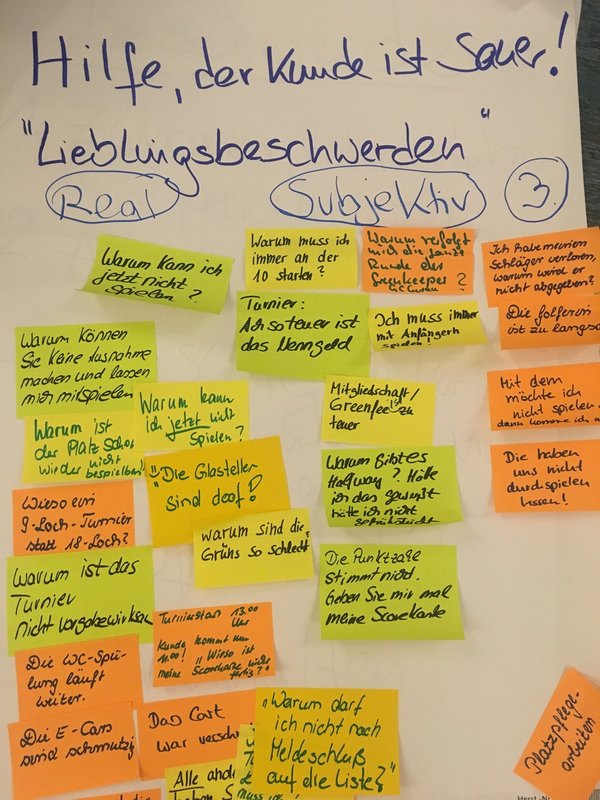 Hilfe, der Kunde ist Sauer!
"Lieblingsbeschwerden"
Real
Subjektiv
3.
Warum kann ich
jetzt nicht
spielen?
Warum muss ich
immer an der
10 starten?
Warum verfolgt
mich die ganze
Runde der
Greenkeeper?
Ich habe meinen
Schläger verloren,
warum wird er
nicht abgegeben?
Turnier:
Ach so teuer ist
das Nenngeld
Ich muss immer
mit Anfängern
spielen!
Die
ist zu langsa
Warum können
Sie keine Ausnahme
machen und lassen
mich mitspielen
Warum kann
ich jetzt nicht
spielen?
Mitgliedschaft/
Greenfee ist zu
teuer
Mit dem
möchte ich
nicht spielen
dann komme ich
Warum ist
der Platz schon
wieder nicht
bespielbar?
"Die Glasteller
sind doof!
Warum gibt es
Halfway? Hätte
ich das gewusst
hätte ich nicht
gefrühstückt
Die haben
uns nicht
durchspielen
lassen!
Wieso ein
9-Loch-Turnier
statt 18-Loch?
warum sind die
Grüns so schlecht
Warum ist das
Turnier
nicht vorgabewirksam
Die Punktzahl
stimmt nicht.
Geben Sie mir mal
meine Scorekarte
Turnierstart 13.00
Uhr
Kunde kommt um
11.00! "Wieso ist
meine Scorekarte nicht
fertig?"
Die WC-Spü-
lung läuft
weiter.
Die E-Cars
sind schmutzig
Das Cart
war versch
"Warum darf
ich nicht nach
Meldeschluß
auf die Liste?"
Alle
Platzpflege-
arbeiten